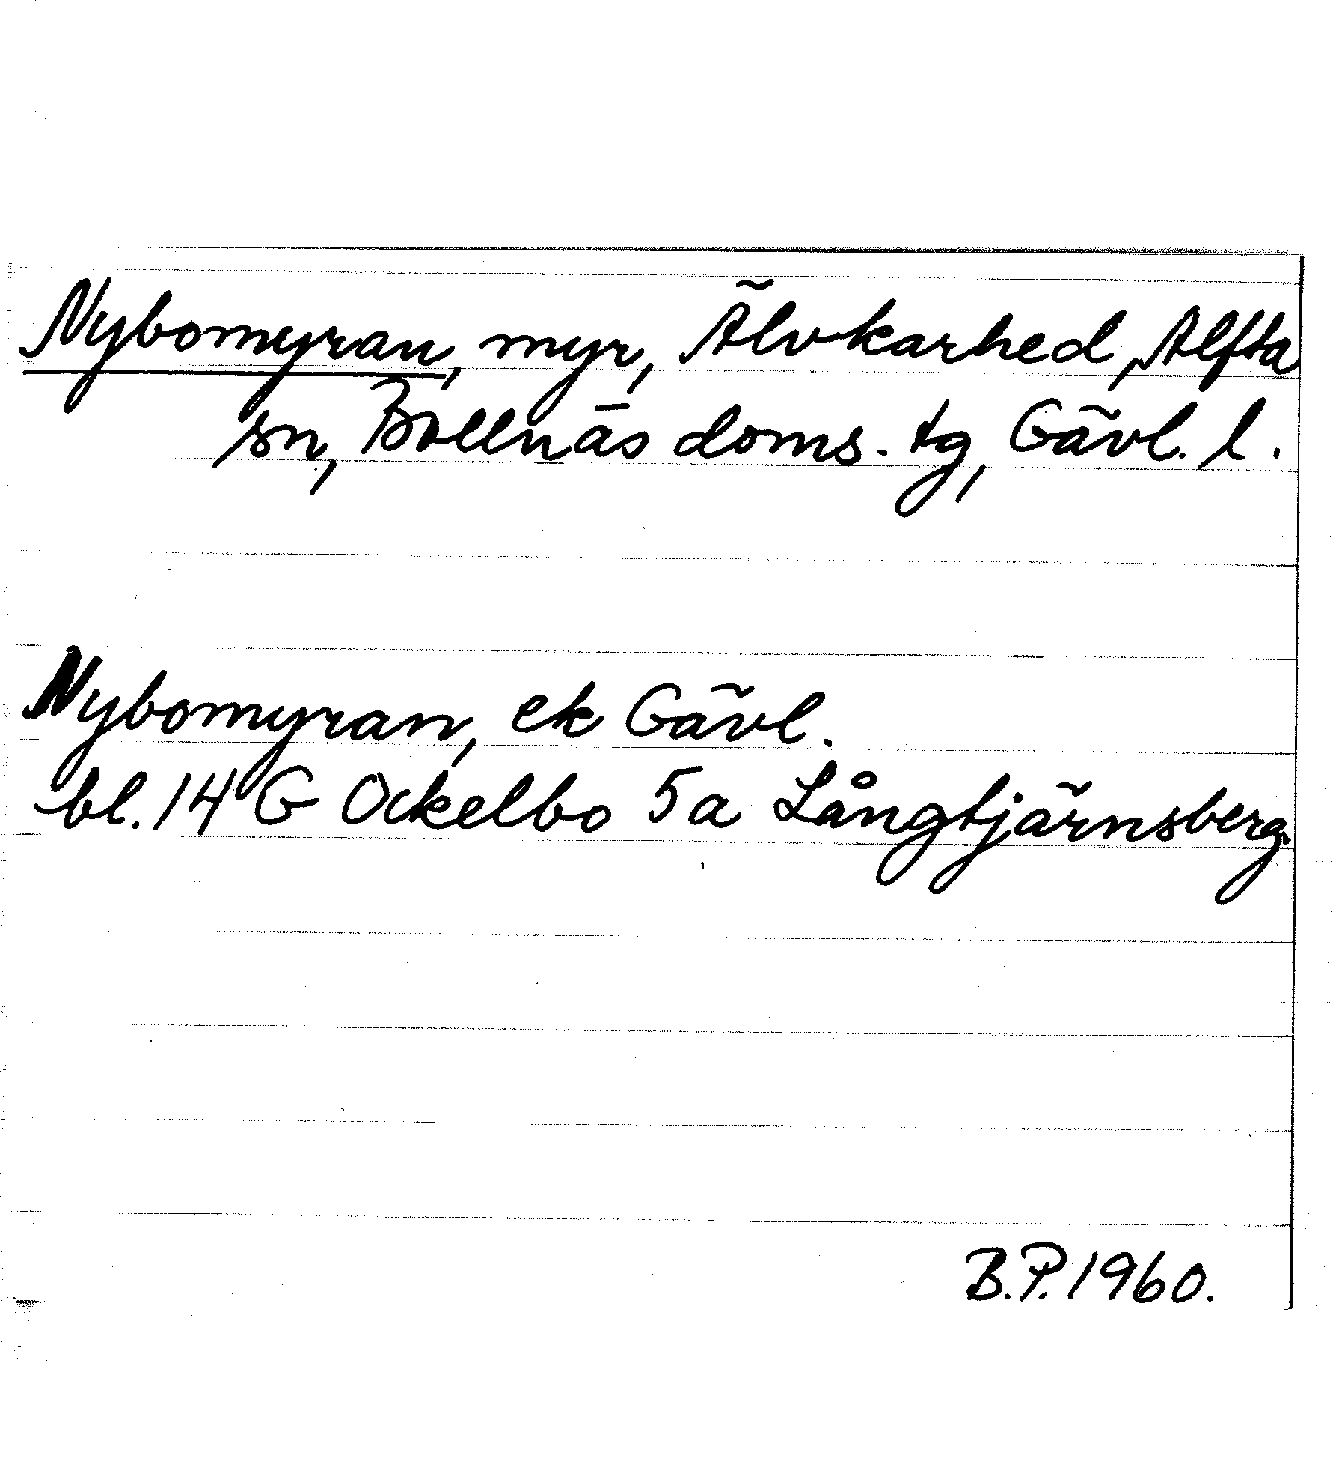 Nybomyran, myr, Älvkarhed, Alfta
sn, Bollnäs doms. tg, Gävl. l.
Nybomyran, ek Gävl.
bl. 14 G Ockelbo 5a Långtjärnsberg.
B.P. 1960.